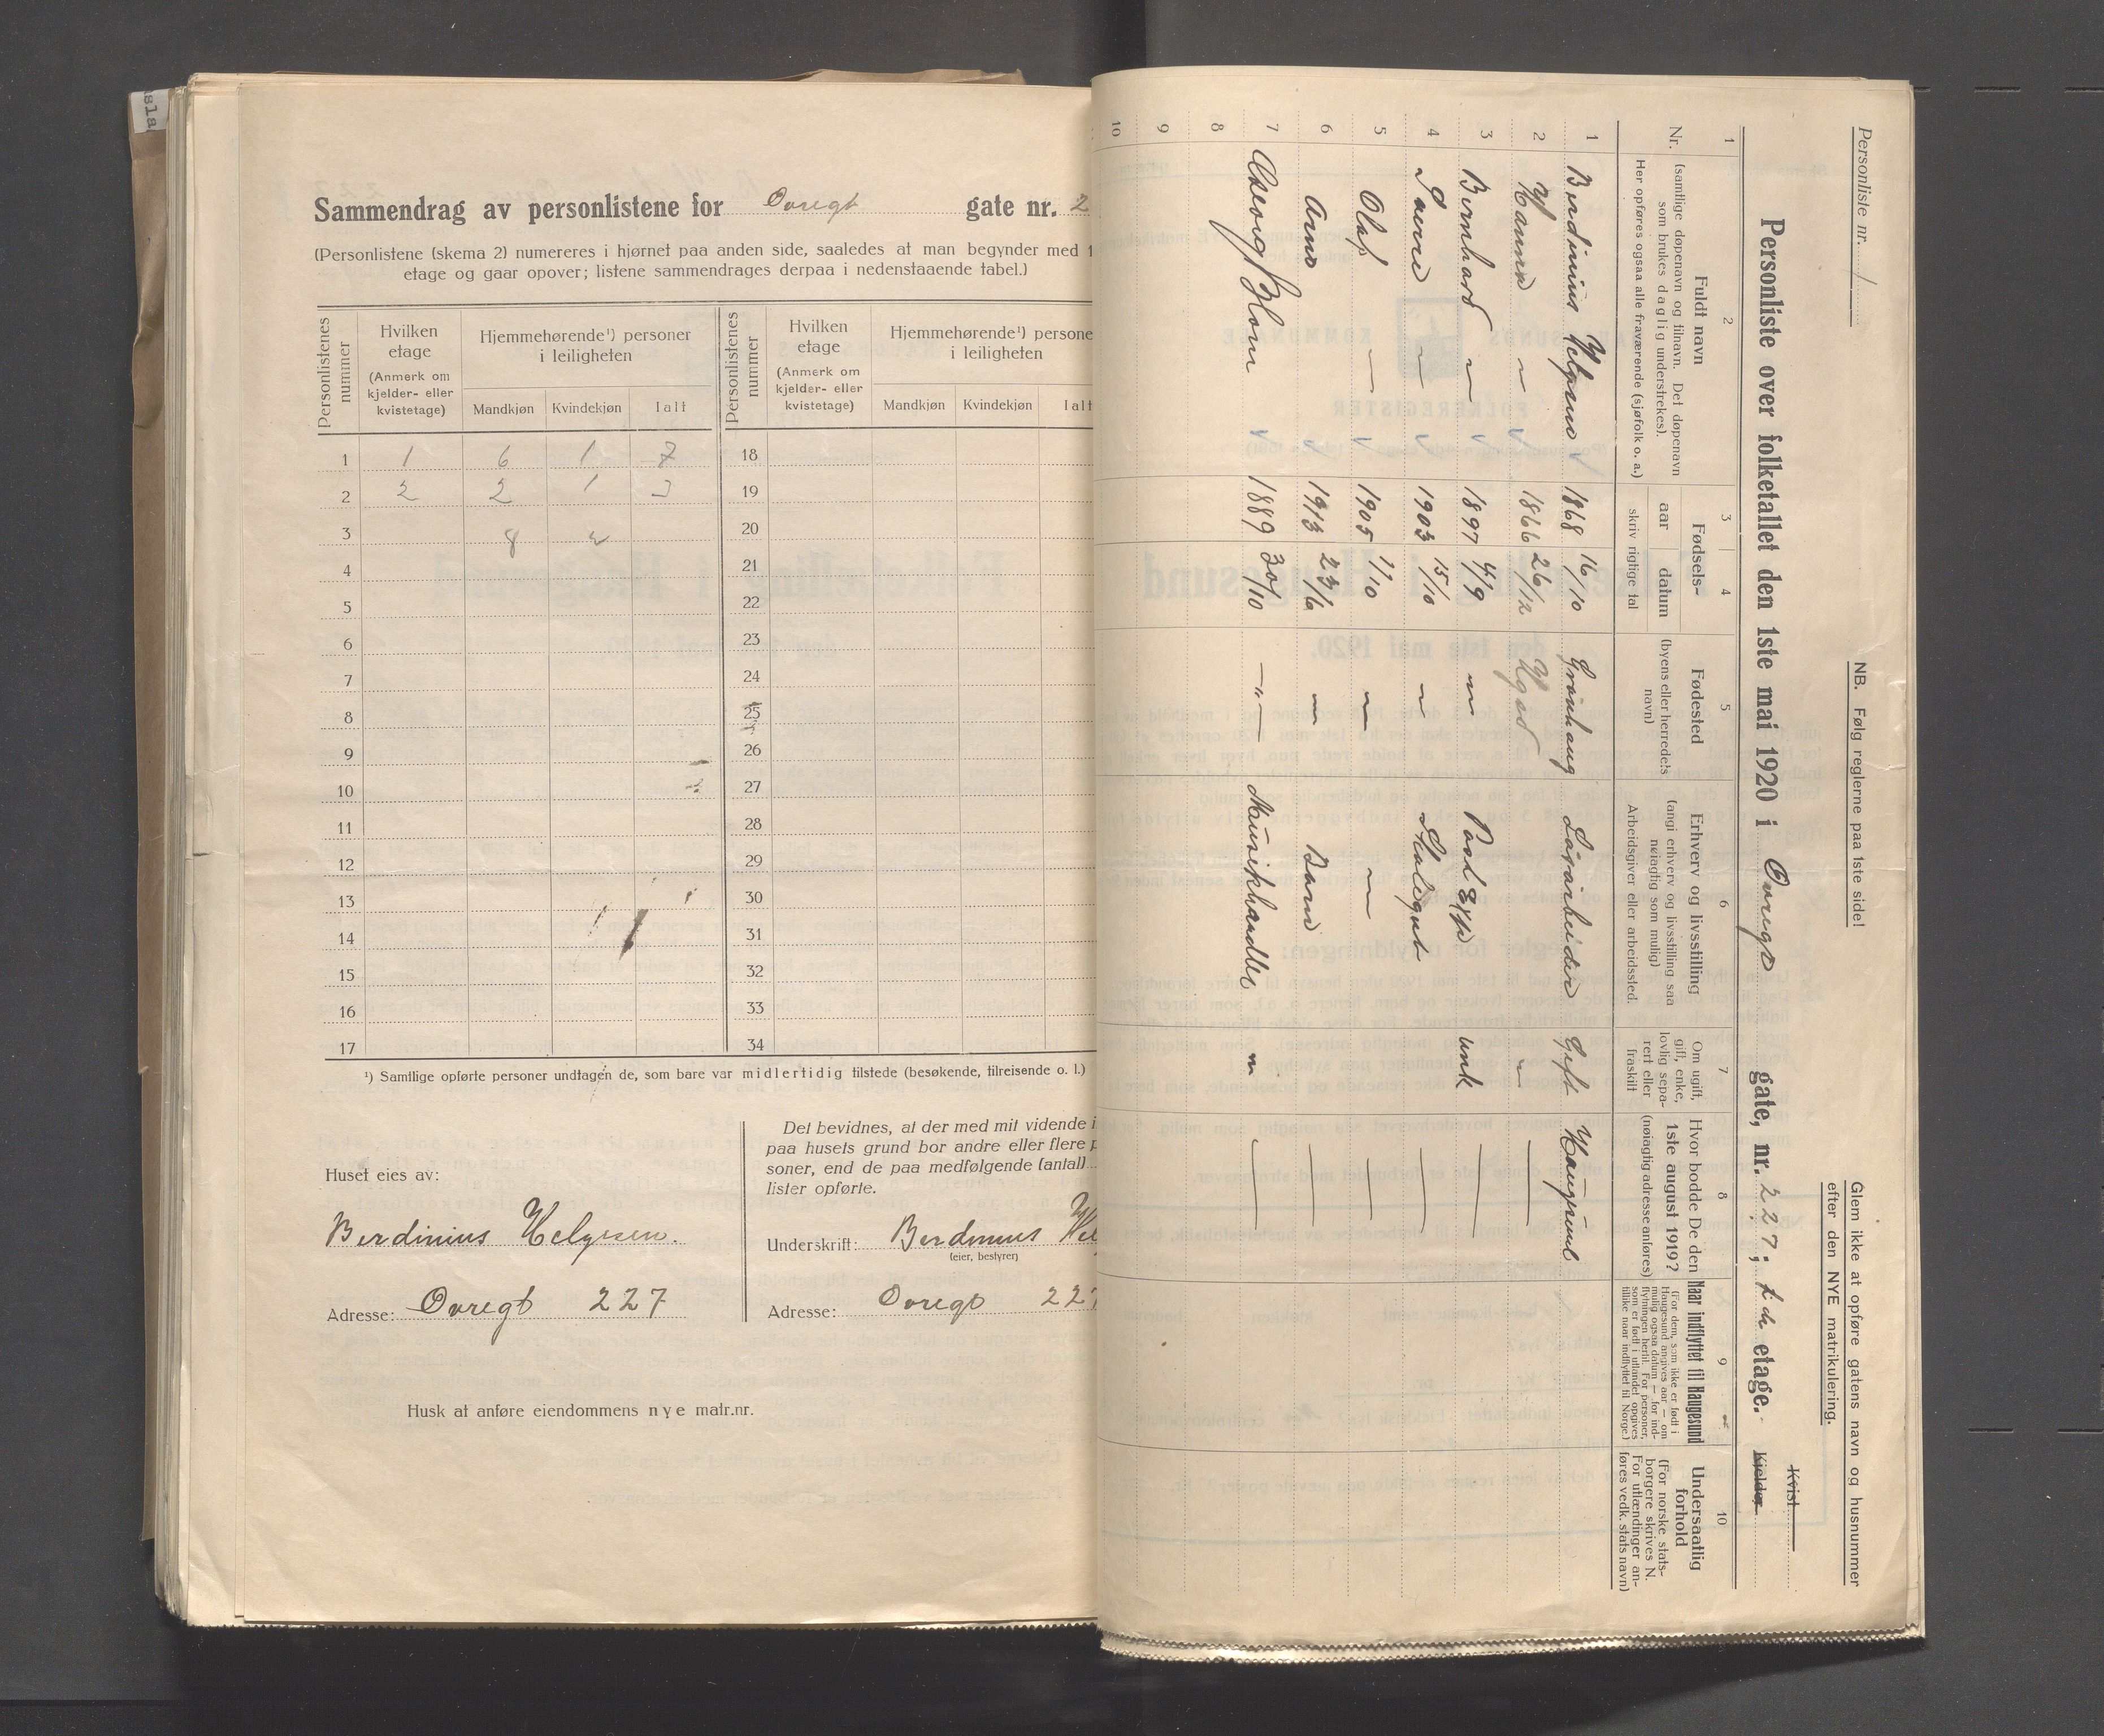 Sammendrag av personlistene for Øvregt gate nr. 2
(Personlistene (skema 2) numereres i hjørnet paa anden side, saaledes at man begynder med 1
etage og gaar opover; listene sammendrages derpaa i nedenstaaende tabel.)
Personlistenes nummer
Hvilken etage (Anmerk om kjelder- eller kvistetage)
Hjemmehørende¹) personer i leiligheten
Mandkjøn Kvindekjøn Ialt
Personlistenes nummer
Hvilken etage (Anmerk om kjelder- eller kvistetage)
Hjemmehørende¹) persone
i leiligheten
Mandkjøn Kvindekjøn Ialt
1 1 6 1 7 18
2 2 2 1 3 19
3 8 2 20
4 21
5 22
6 23
7 24
8 25
9 26
10 27
11 28
12 29
13 30
14 31
15 32
16 33
17 34
¹) Samtlige opførte personer undtagen de, som bare var midlertidig tilstede (besøkende, tilreisende o. l.)
Huset eies av:
Berdinius Helgesen.
Adresse: Øvregt 227
Det bevidnes, at der med mit vidende i
paa husets grund bor andre eller flere p
soner, end de paa medfølgende (antal)
lister opførte.
Underskrift: Berdinius Hel
(eier, bestyrer)
Adresse: Øvregt 227
Husk at anføre eiendommens nye matr.nr.
Personliste nr. 1
NB. Følg reglerne paa 1ste side!
Glem ikke at opføre gatens navn og husnummer
efter den NYE matrikulering.
Personliste over folketallet den 1ste mai 1920 i Øvregt gate, nr. 227; 1ste etage.
Kvist
Kjelder
1 2 3 4 5 6 7 8 9 10
Nr.
Fuldt navn
(samtlige døpenavn og tilnavn. Det døpenavn
som brukes daglig understrekes).
Her opføres ogsaa alle fraværende (sjøfolk o. a.)
Fødsels-
aar datum
skriv rigtige tal
Fødested
(byens eller herredets
navn)
Erhverv og livsstilling
(angi erhverv og livsstilling saa
nøiagtig som mulig)
Arbeidsgiver eller arbeidssted.
Om ugift,
gift, enke,
lovlig sepa-
rert eller
fraskilt
Hvor bodde De den
1ste august 1919?
(nøiagtig adresse anføres)
Naar indflyttet til Haugesund
(For dem, som ikke er født i
Haugesund angives aar — om
mulig ogsaa datum — for ind-
flytningen hertil. For personer,
som er født i utlandet opgives
tillike naar indflyttet til Norge.)
Undersaatlig
forhold
(For norske stats-
borgere skrives N.
For utlændinger an-
føres vedk. stats navn)
1 Berdinius Helgesen 1868 16/10 Grönhaug Gift Haugesund
2 Hanna 1866 26/12 "
3 Bernhard 1897 4/9 " Post Exp unk
4 1903 15/10 "
5 Olaf 1905 1/10 " "
6 Arne 1913 23/6 " Barn
7 Blom 1889 30/10 — " — Musikhandler "
8
9
10